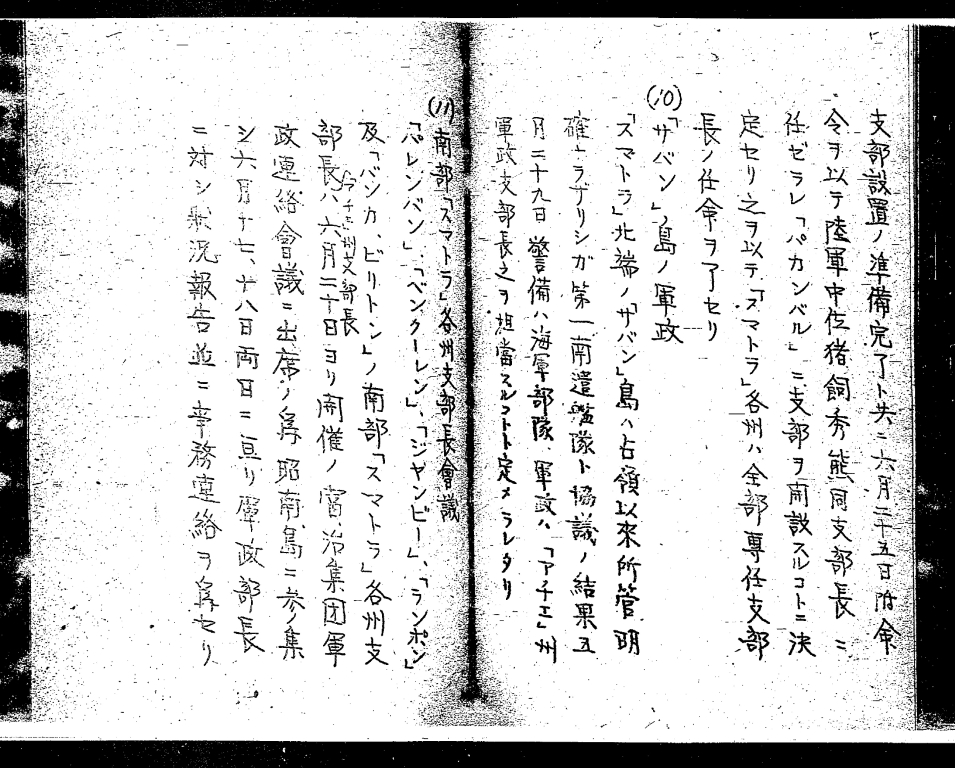 支部設置ノ準備完了ト共ニ六月二十五日附命
令ヲ以テ陸軍中佐猪飼秀熊同支部長ニ
任ゼラレ「パカンバル」ニ支部ヲ開設スルコトニ決
定セリ之ヲ以テ「スマトラ」各州ハ全部専任支部
長ノ任命ヲ了セリ
(10)
「サバン」島ノ軍政
「スマトラ」北端ノ「サバン」島ハ占領以来所管明
確ナラザリシガ第一南遣艦隊ト協議ノ結果五
月二十九日警備ハ海軍部隊、軍政ハ「アチエ」州
軍政支部長之ヲ担當スルコトト定メラレタリ
(11)
南部「スマトラ」各州支部長會議
「パレンバン」、「ベンクーレン」、「ジヤンビー」、「ランポン」
及「バンカ、ビリトン」ノ南部「スマトラ」各州支
部長ハ六月二十日ヨリ開催ノ富、治集団軍
政連絡會議ニ出席ノ為昭南島ニ参集
シ六月十七、十八日両日ニ亘リ軍政部長
ニ対シ状況報告並ニ事務連絡ヲ為セリ